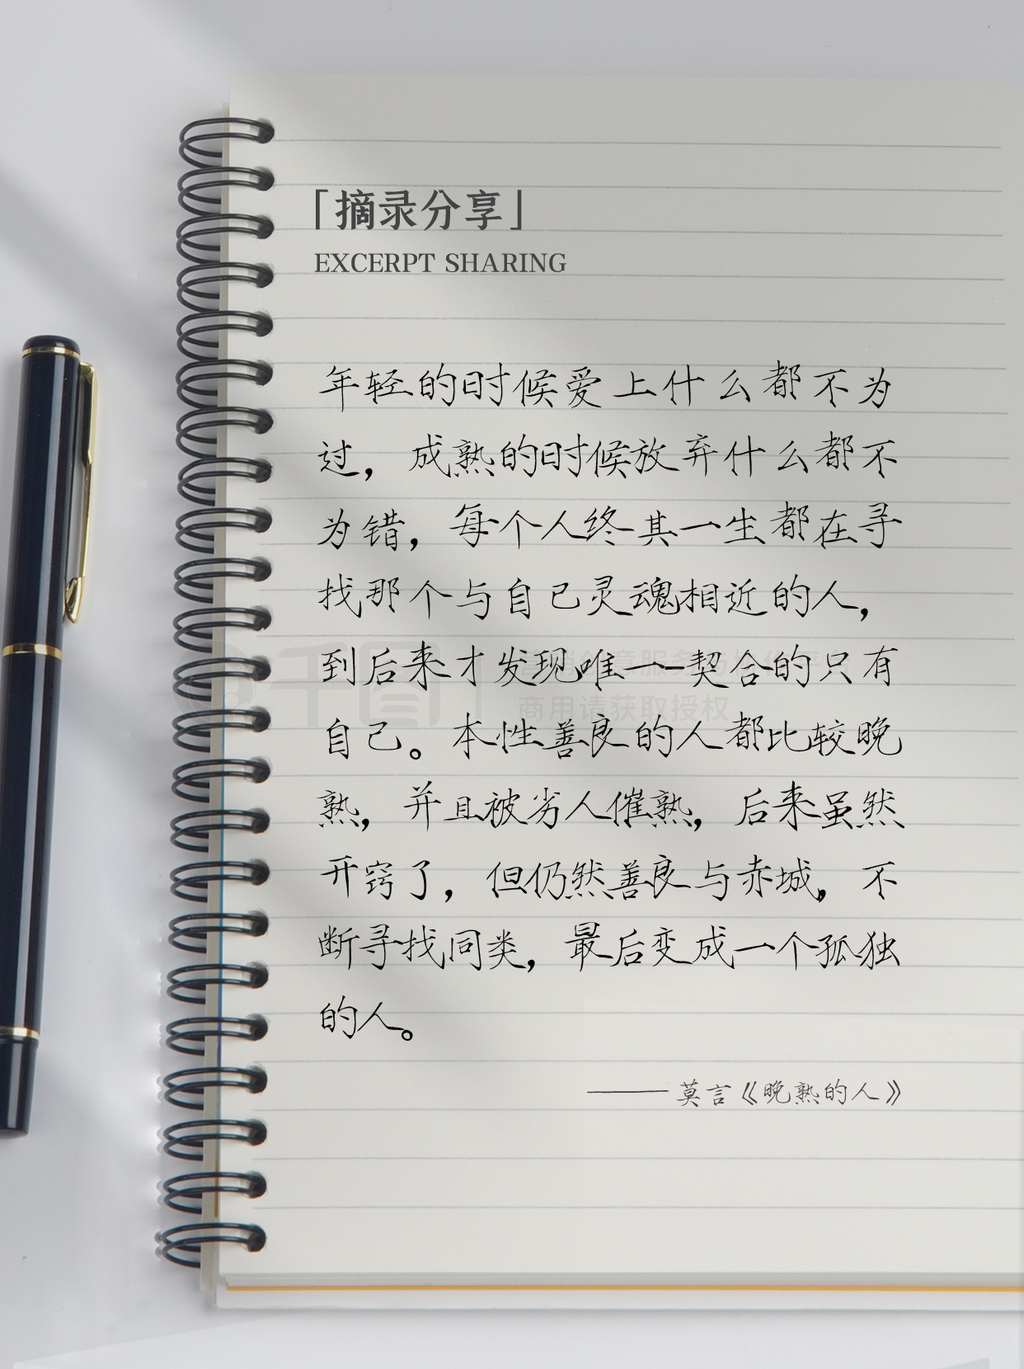 「摘录分享」
EXCERPT SHARING
年轻的时候爱上什么都不为
过，成熟的时候放弃什么都不
为错，每个人终其一生都在寻
找那个与自己灵魂相近的人，
到后来才发现唯一契合的只有
自己。本性善良的人都比较晚
熟，并且被劣人催熟，后来虽然
开窍了，但仍然善良与赤城，不
断寻找同类，最后变成一个孤独
的人。
——莫言《晚熟的人》
千图
商用请获取授权